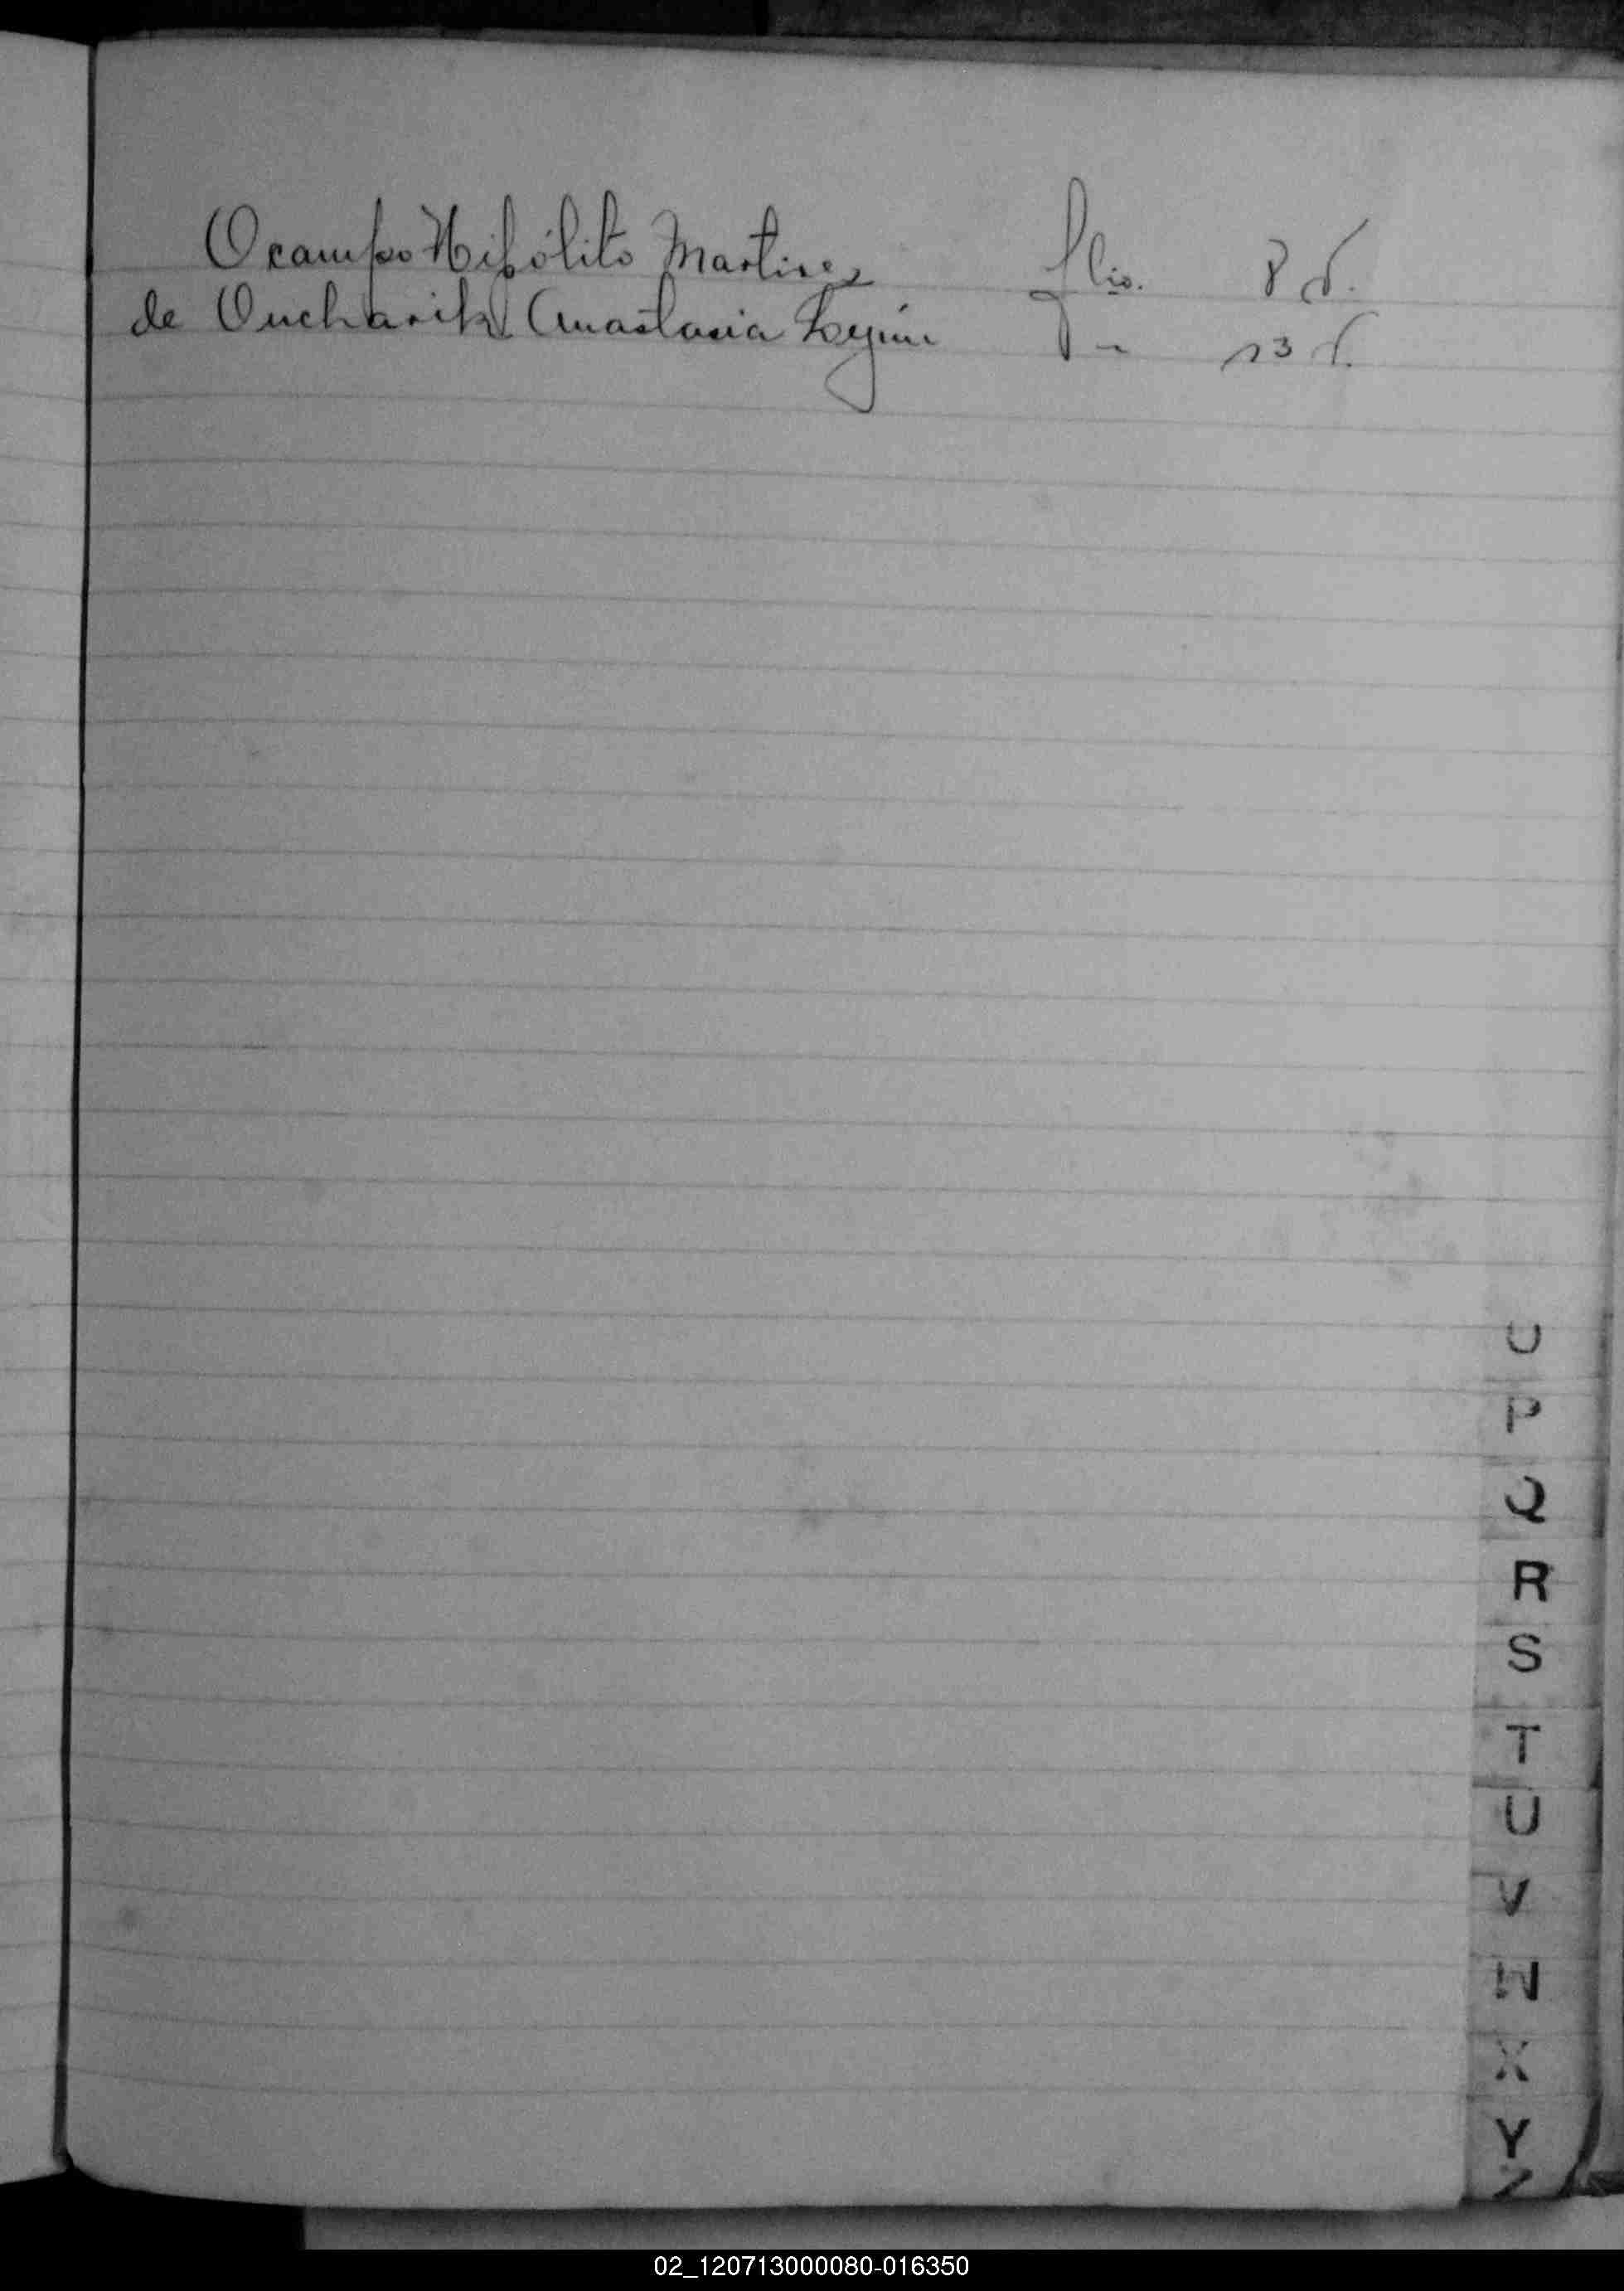 Ocampo Hipólito Martinez flio. 8 v.
de Oncharik Anastasia " 13 v.
O
P
Q
R
S
T
U
V
W
X
Y
Z
02_120713000080-016350